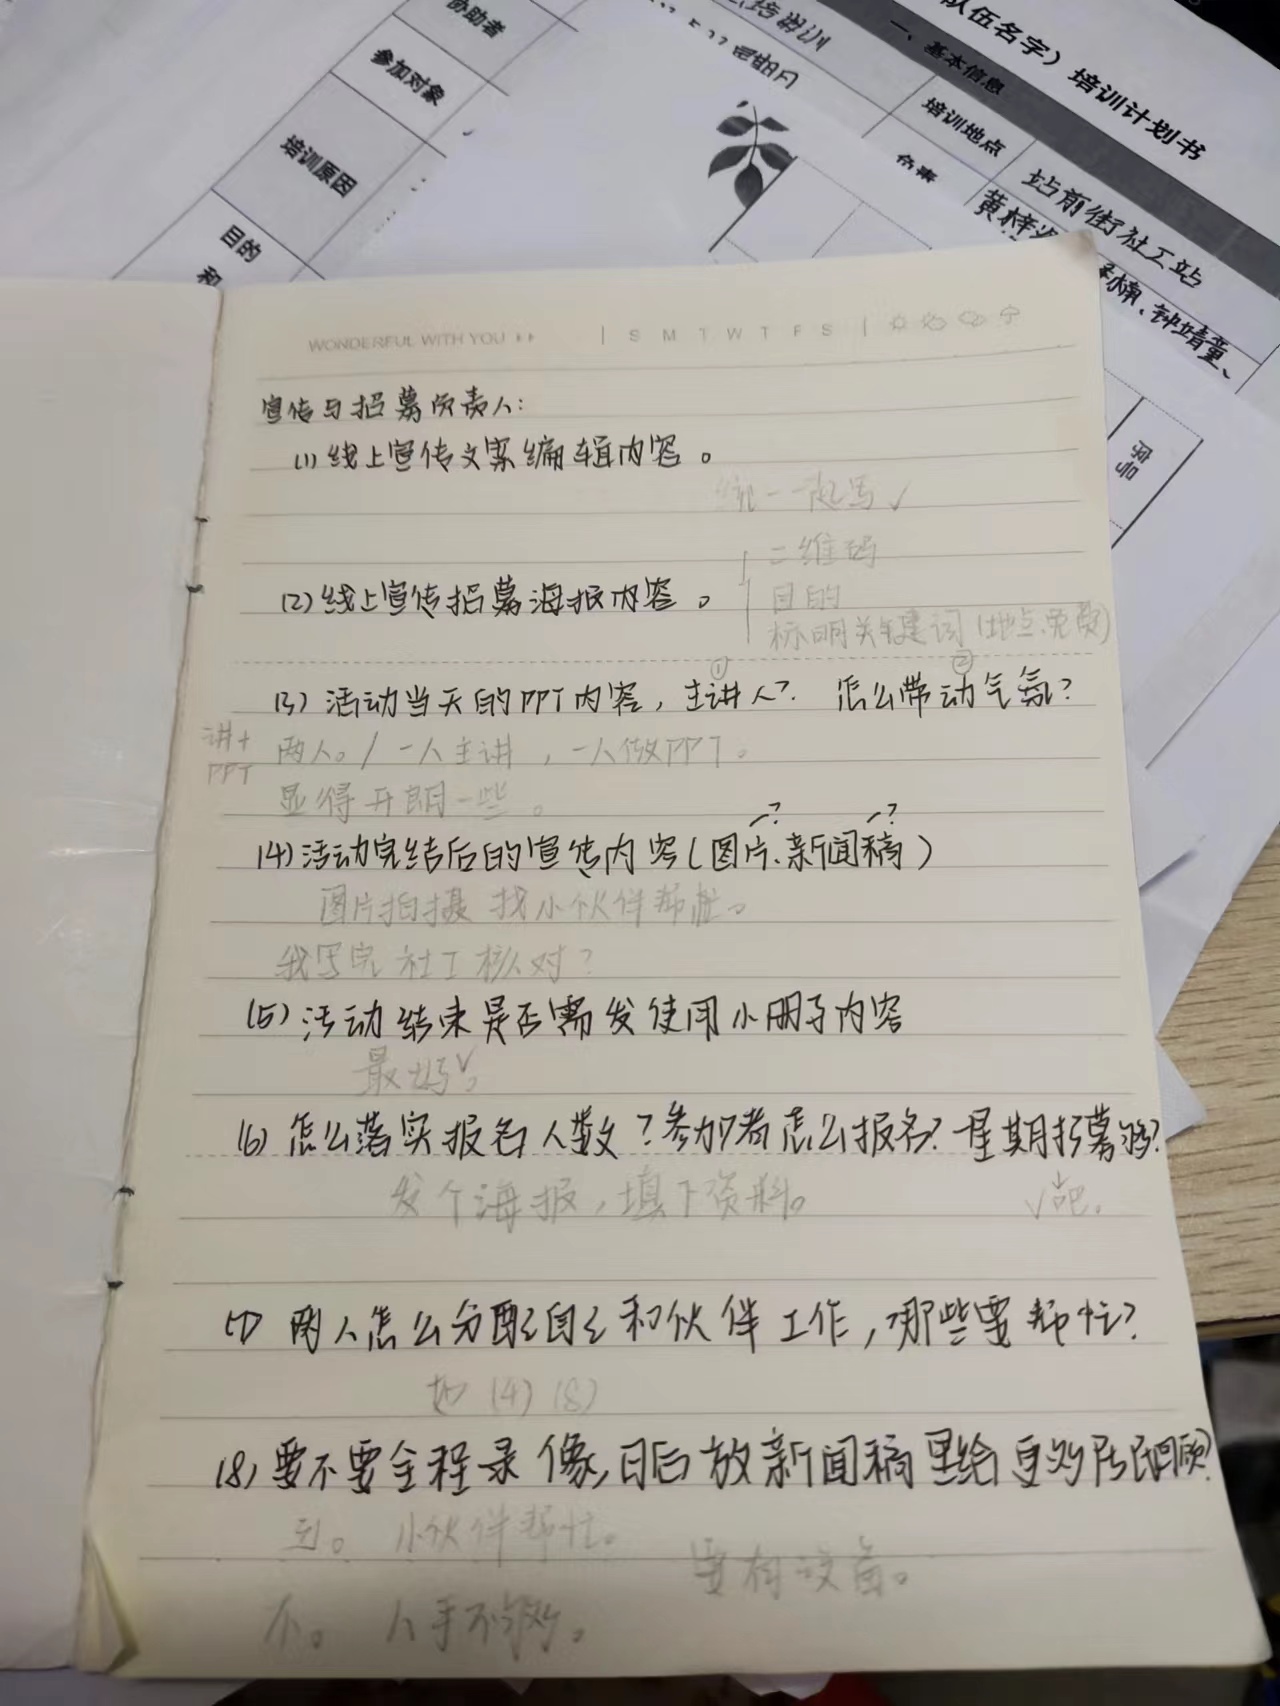 协助者
参加对象
培训原因
目的
和
队伍名字）培训计划书
一、基本信息
培训地点
站前街社工站
WONDERFUL WITH YOU
S M T W T F S
宣传与招募负责人：
(1) 线上宣传文案编辑内容。
一起写✓
二维码
(2) 线上宣传招募海报内容。
目的
标明关键词（地点、免费）
① ②
(3) 活动当天的PPT内容，主讲人？ 怎么带动气氛？
讲+ 两人。/ 一人主讲，一人做PPT。
PPT
显得开朗一些。
? ?
(4) 活动完结后的宣传内容（图片、新闻稿）
图片拍摄 找小伙伴帮忙。
我写完 社工核对？
(5) 活动结束是否需发使用小册子内容
最好✓
(6) 怎么落实报名人数？参加者怎么报名？一星期招募够？
发个海报，填下资料。 ✓吧。
(7) 两人怎么分配自己和伙伴工作，哪些要帮忙？
(4) (8)
(8) 要不要全程录像，日后放新闻稿里给更多居民回顾？
小伙伴帮忙。
要有设备。
不。 人手不够。